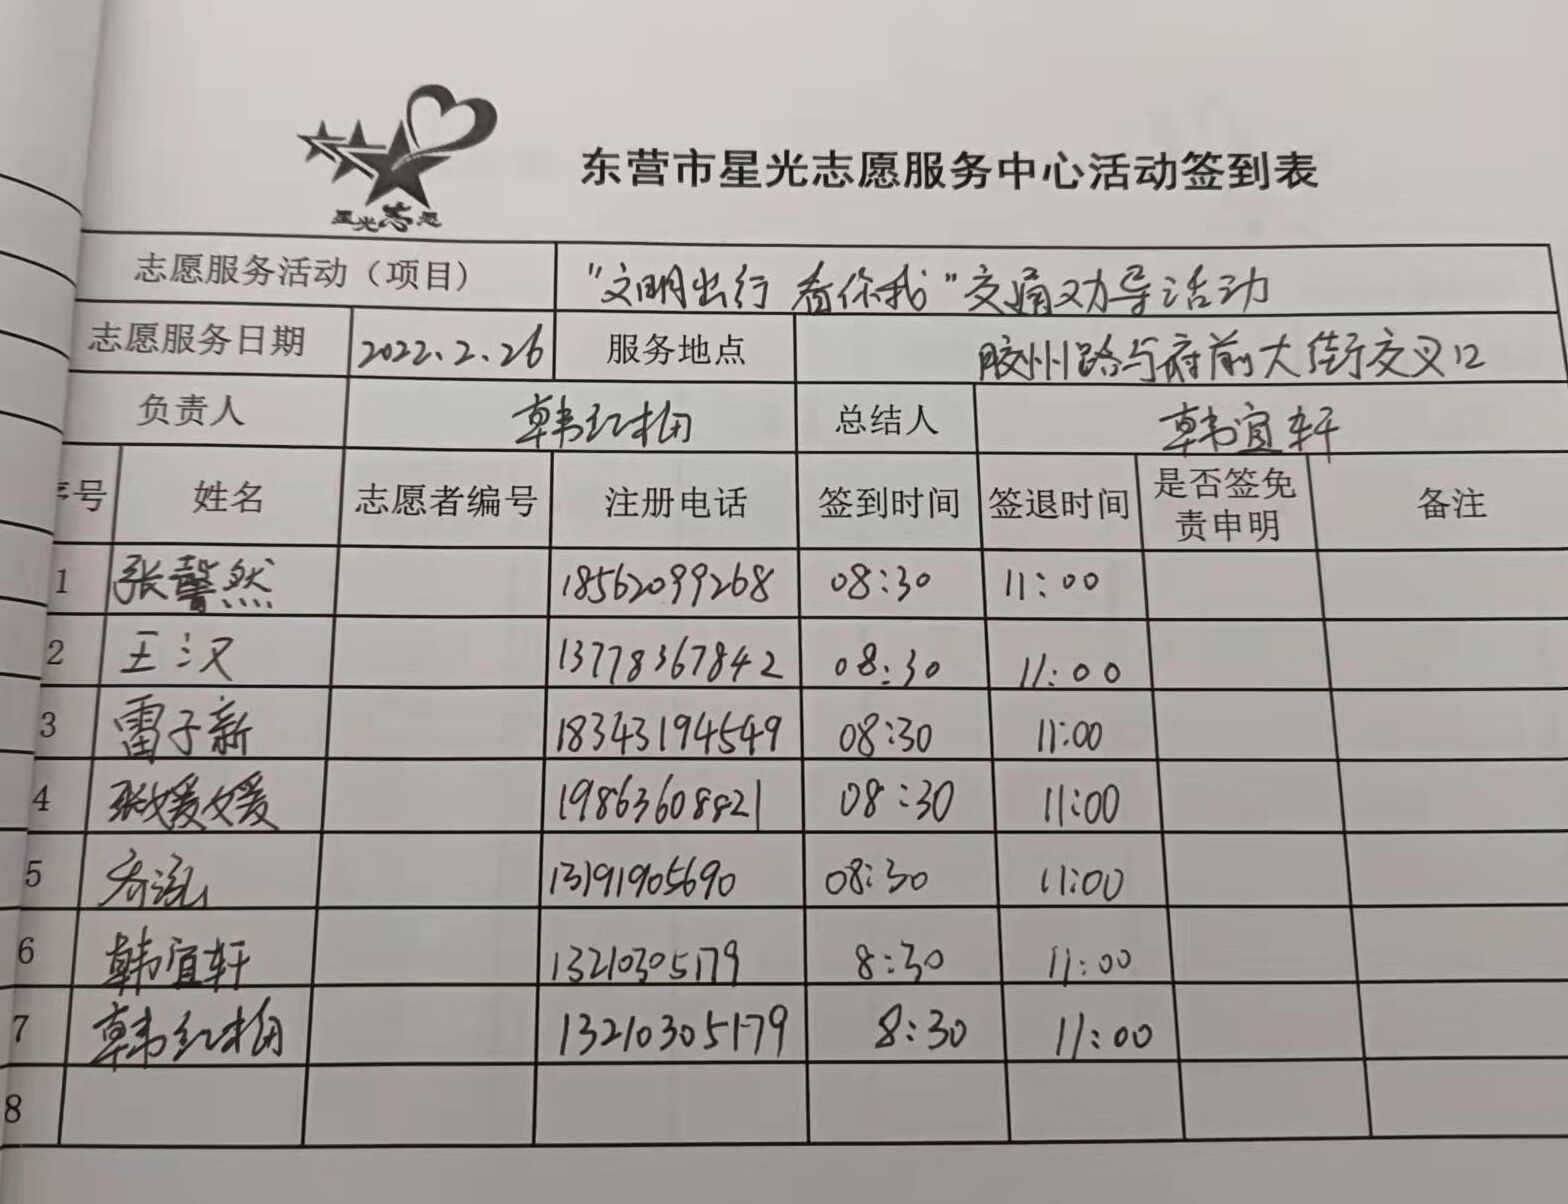 星光志愿
东营市星光志愿服务中心活动签到表
志愿服务活动（项目） "文明出行 看你我"交通劝导活动
志愿服务日期 2022.2.26 服务地点 胶州路与府前大街交叉口
负责人 韩红梅 总结人 韩宜轩
序号 姓名 志愿者编号 注册电话 签到时间 签退时间 是否签免责申明 备注
1 张馨然 18562099268 08:30 11:00
2 王汉 13778367842 08:30 11:00
3 雷子新 18343194549 08:30 11:00
4 张媛媛 19863608821 08:30 11:00
5 13191905690 08:30 11:00
6 韩宜轩 13210305179 8:30 11:00
7 韩红梅 13210305179 8:30 11:00
8